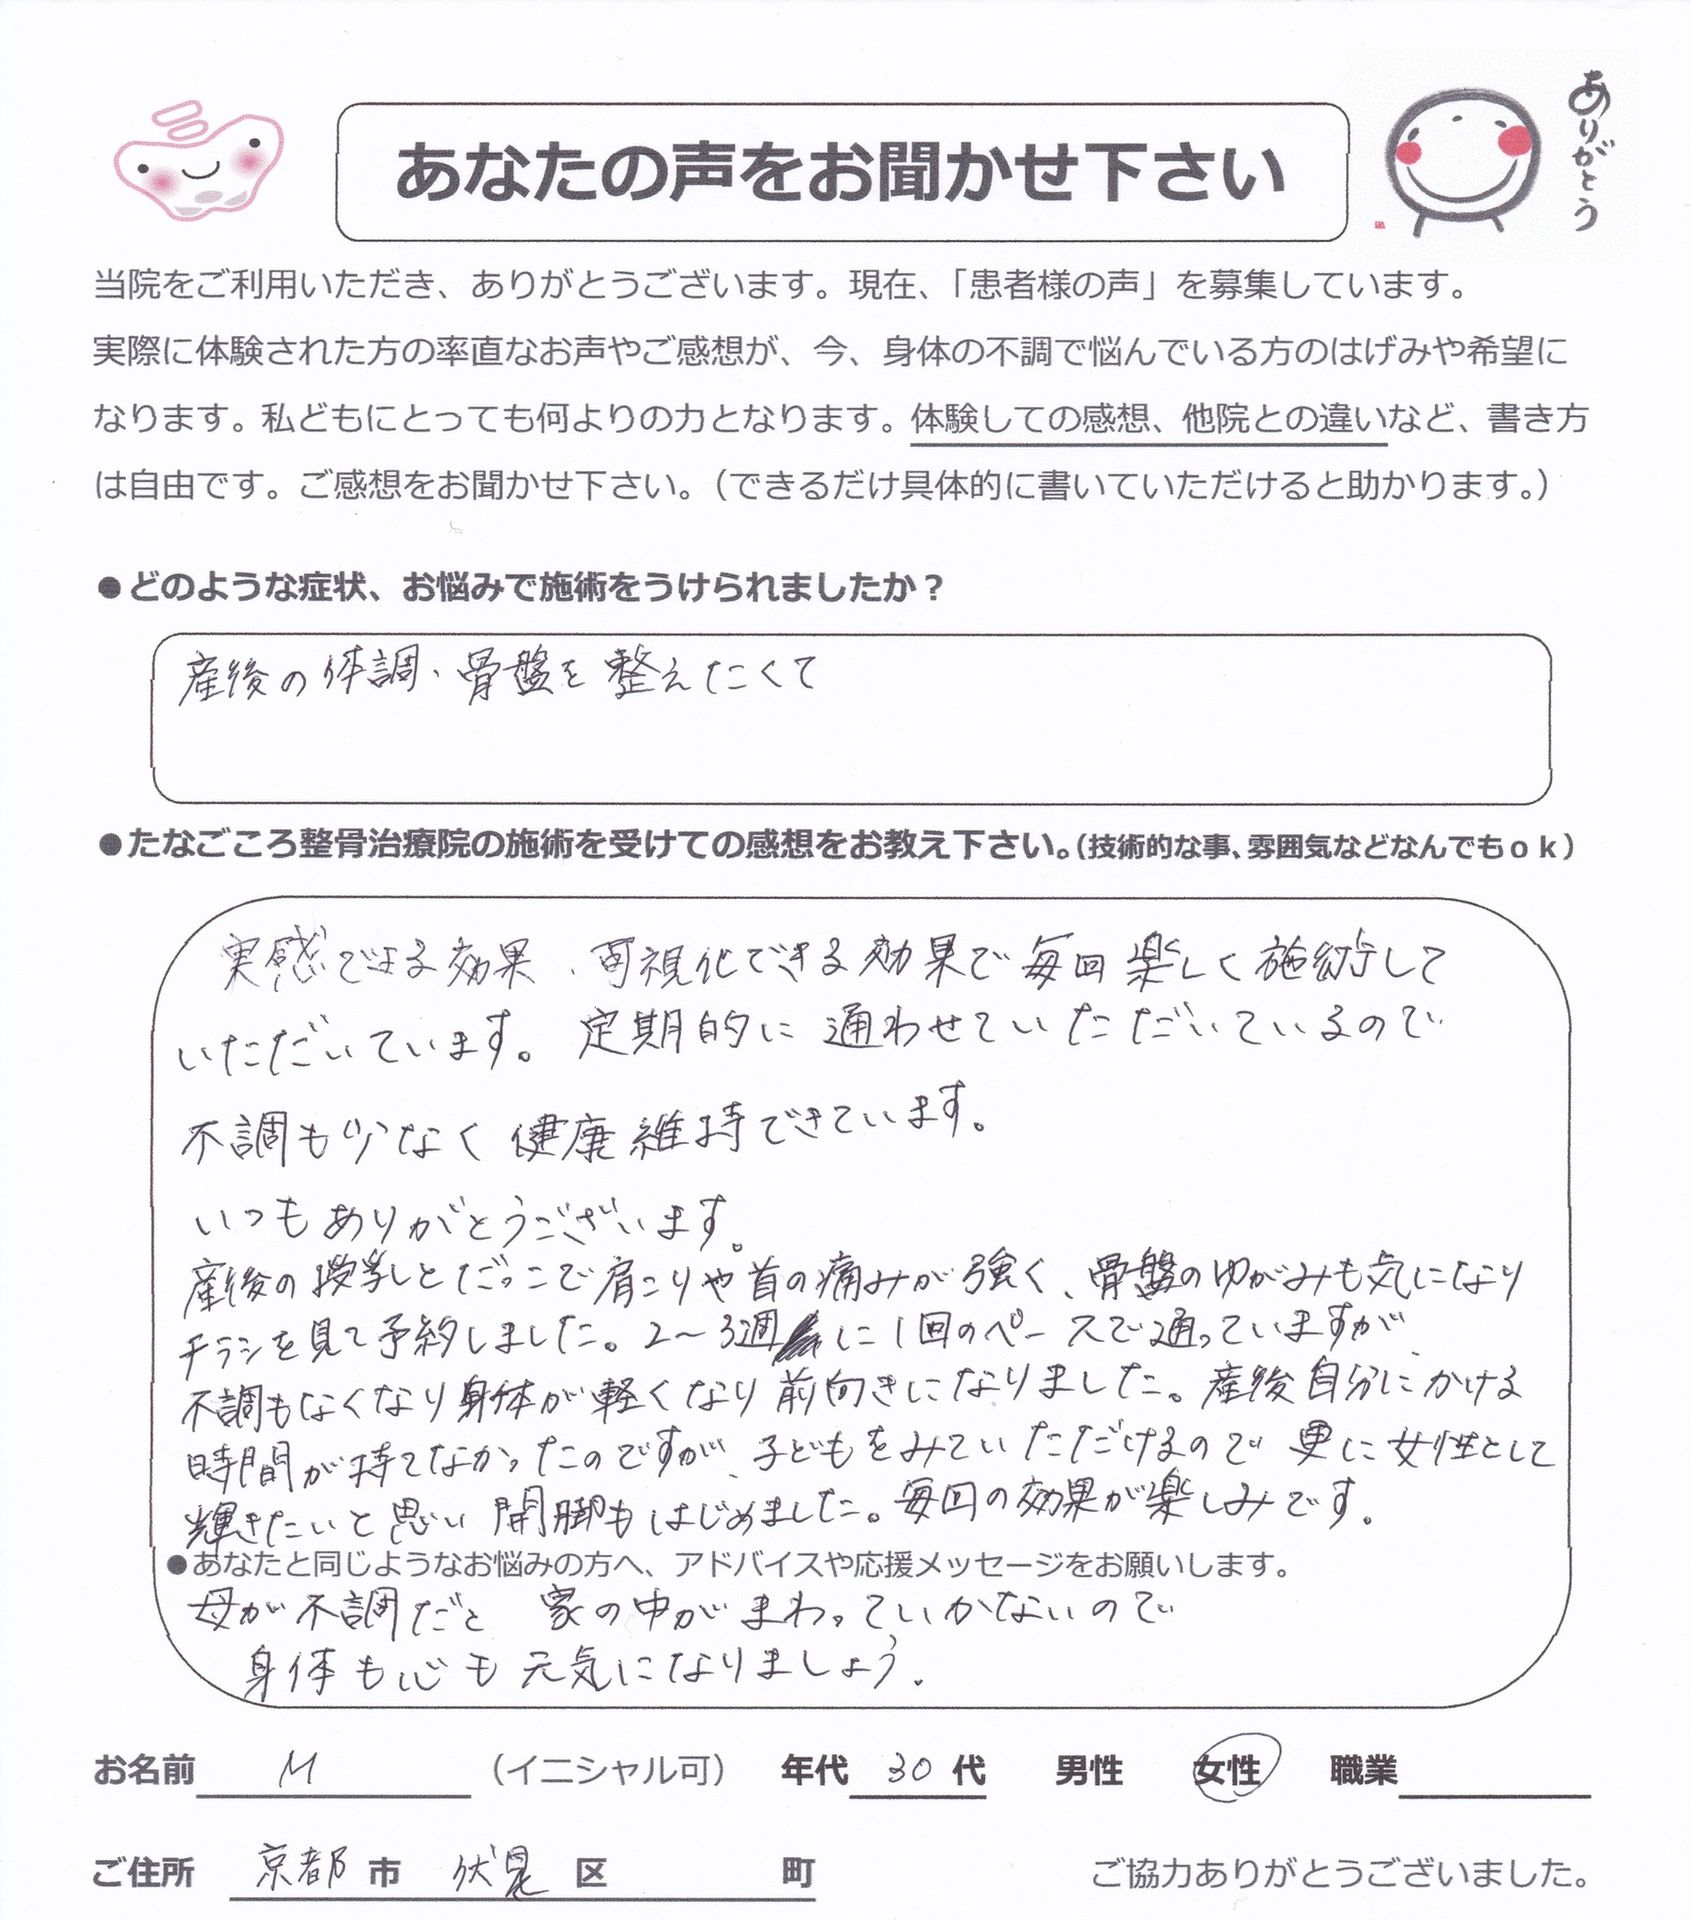 あなたの声をお聞かせ下さい
ありがとう
当院をご利用いただき、ありがとうございます。現在、「患者様の声」を募集しています。
実際に体験された方の率直なお声やご感想が、今、身体の不調で悩んでいる方のはげみや希望に
なります。私どもにとっても何よりの力となります。体験しての感想、他院との違いなど、書き方
は自由です。ご感想をお聞かせ下さい。（できるだけ具体的に書いていただけると助かります。）
●どのような症状、お悩みで施術をうけられましたか？
産後の体調、骨盤を整えたくて
●たなごころ整骨治療院の施術を受けての感想をお教え下さい。（技術的な事、雰囲気などなんでもｏｋ）
実感できる効果、可視化できる効果で毎回楽しく施術して
いただいています。定期的に通わせていただいているので
不調も少なく健康維持できています。
いつもありがとうございます。
産後の授乳とだっこで肩こりや首の痛みが強く、骨盤のゆがみも気になり
チラシを見て予約しました。2〜3週に1回のペースで通っていますが、
不調もなくなり身体が軽くなり前向きになりました。産後自分にかける
時間が持てなかったのですが、子どもをみていただけるので更に女性として
輝きたいと思い開脚もはじめました。毎回の効果が楽しみです。
●あなたと同じようなお悩みの方へ、アドバイスや応援メッセージをお願いします。
母が不調だと家の中がまわっていかないので
身体も心も元気になりましょう。
お名前 M （イニシャル可） 年代 30 代 男性 女性 職業
ご住所 京都 市 伏見 区 町 ご協力ありがとうございました。